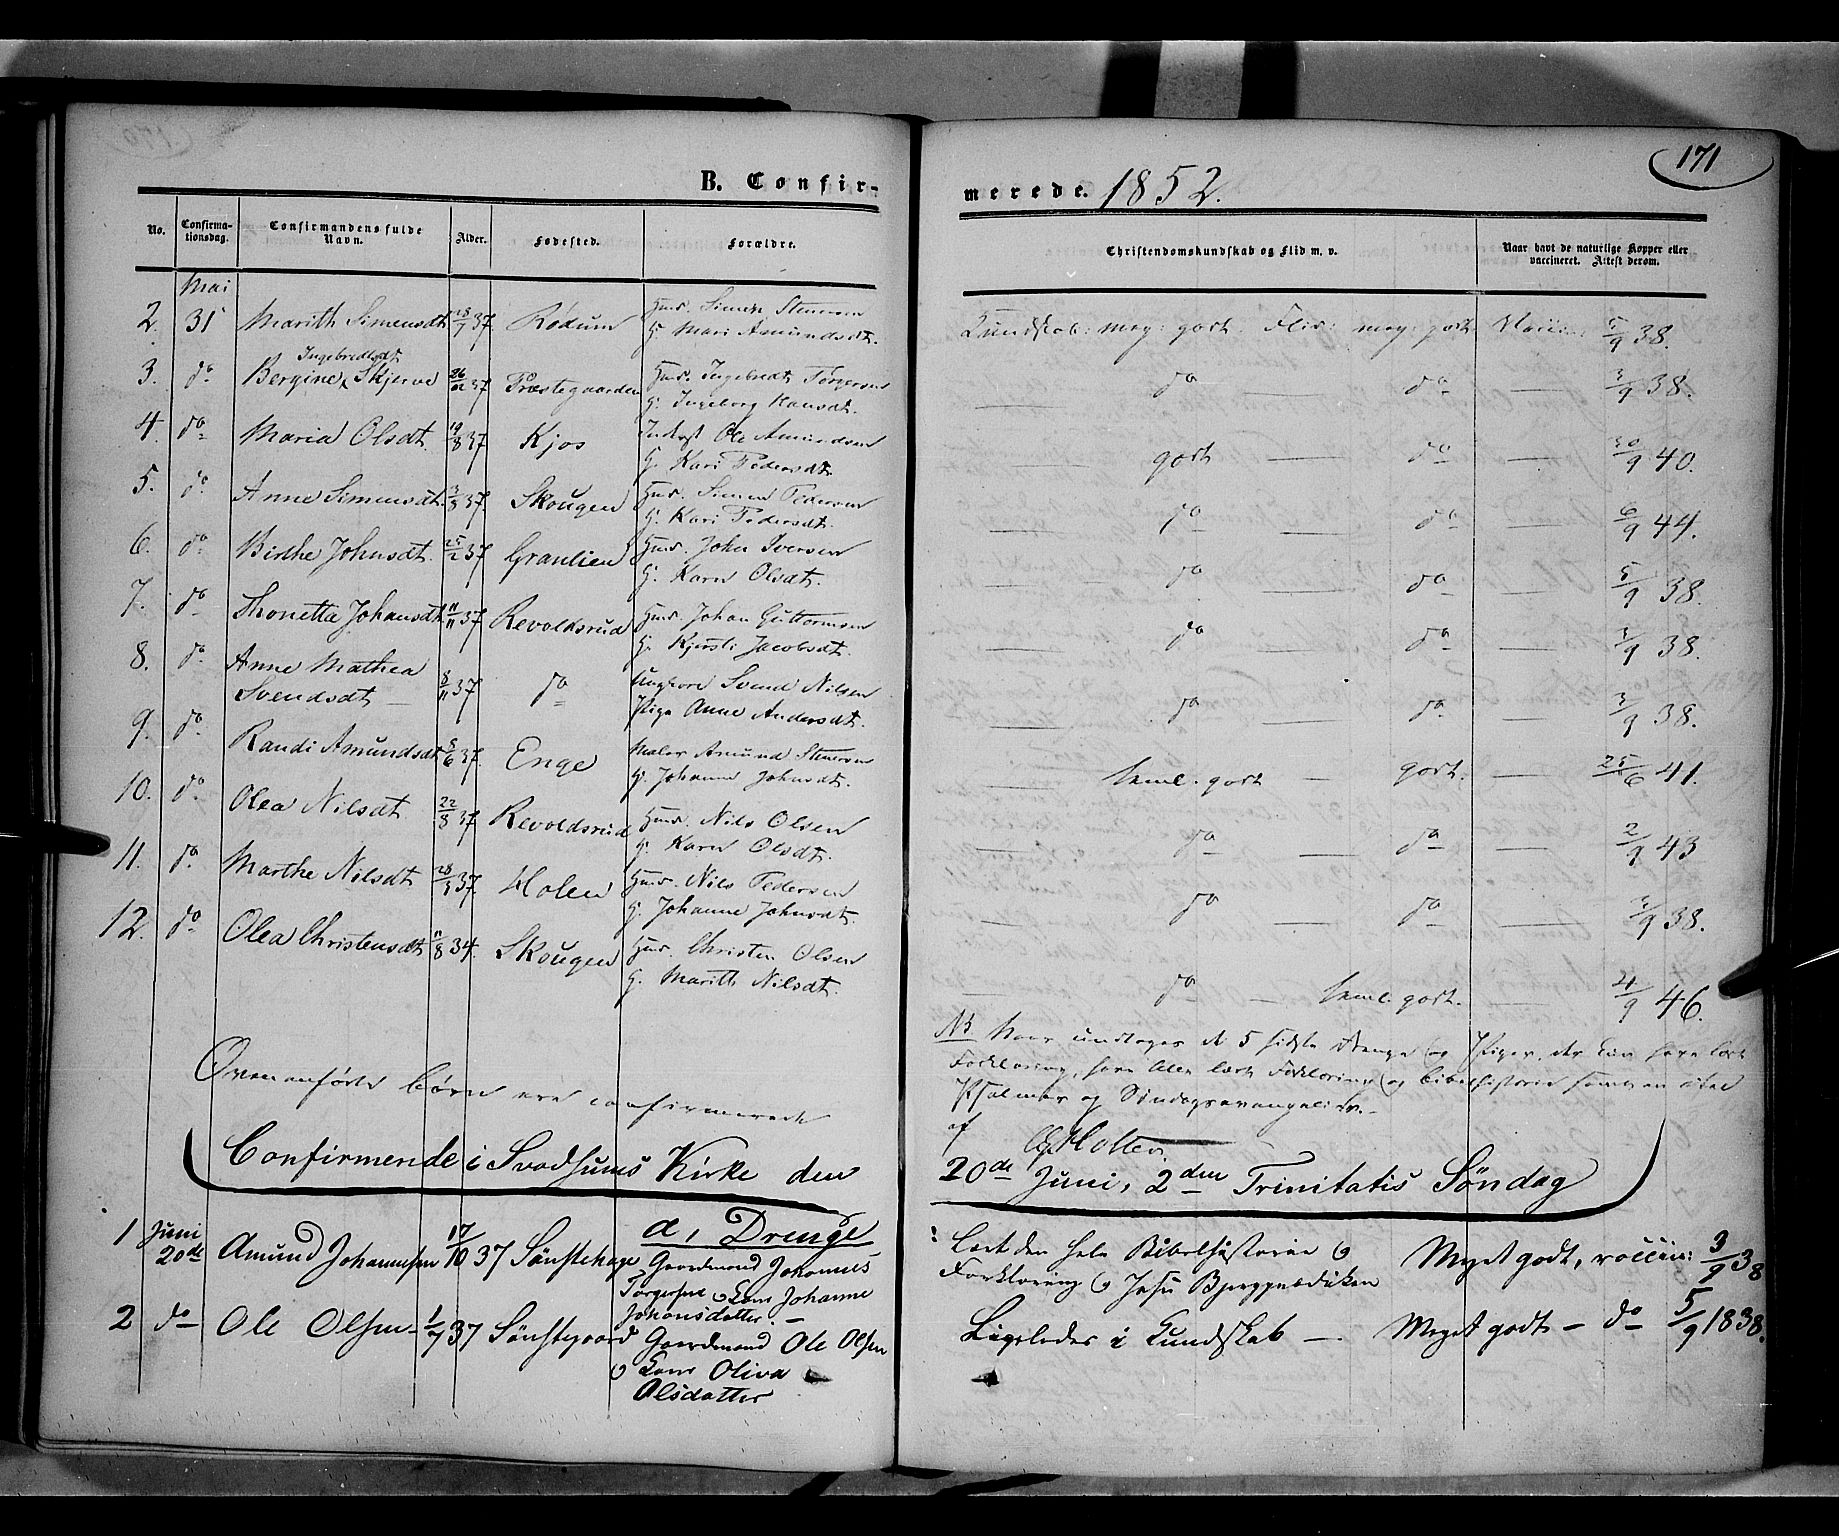 171
B. Confir-
merede. 1852.
No.
Confirma-
tionsdag.
Confirmandens fulde
Navn.
Alder.
Fødested.
Forældre.
Christendomskundskab og Flid m. v.
Naar havt de naturlige Kopper eller
vaccineret. Attest derom.
Mai
2. 31 Marith Simensdt 37 Rødum Huusm. Simen Stenersen
H. Mari Amundsdt. Kundskab: meg: godt. Flid: meg: godt. Vaccin: 5/9 38.
Ingebredtsdt
3. do Bergine Skjerve 37 Præstegaarden Huusm. Ingebredt Torgersen
H. Ingeborg Hansdt. do do 3/9 38.
4. do Maria Olsdt. 19/8 37 Kjos Inderst Ole Amundsen
H. Kari Pedersdt. godt do 30/9 40.
5. do Anne Simensdt. 37 Skougen Huusm. Simen Pedersen
H. Kari Pedersdt. do do 6/9 44.
6. do Birthe Johnsdt. 25/2 37 Granlien Huusm. John Iversen
H. Karen Olsdt. do do 5/9 38.
7. do Thonetta Johansdt 11/11 37 Revoldsrud Huusm. Johan Guttormsen
H. Kjersti Jacobsdt. do do 3/9 38.
8. do Anne Mathea
Svendsdt 37 do Ungkarl Svend Nilsen
Pige Anne Andersdt. do do 3/9 38.
9. do Randi Amundsdt 37 Enge Maler Amund Stenersen
H. Johanne Johnsdt. teml. godt godt. 25/6 41.
10. do Olea Nilsdt 22/8 37 Revoldsrud Huusm. Nils Olsen
H. Karen Olsdt. do do 2/9 43
11. do Marthe Nilsdt 37 Holen Huusm. Nils Pedersen
H. Johanne Johnsdt. do do 3/9 38.
12. do Olea Christensdt 11/8 34. Skougen Huusm. Christen Olsen
H. Marith Nilsdt. do teml. godt. 4/9 46.
NB Naar undtages de 5 sidste Drenge og Piger, der kun have lært
Forklaring, have Alle lært Forklaring og Bibelhistorie samt en Deel
Psalmer og Søndagsevangelier.
Ovenanførte Børn ere confirmerede
af Holter.
Confirmerede i Svadsums Kirke den
20de Juni, 2den Trinitatis Søndag
a, Drenge
1 Juni
20de Amund Johannesen 17/10 37 Sønstehage Gaardmand Johannes
Torgersen og Kone Johanne
Johansdatter. Lært den hele Bibelhistorie og
Forklaring og Jesu Bjergprædiken Meget godt, vaccin: 3/9 38
2 do Ole Olsen 1/7 37 Sønstegaard Gaardmand Ole Olsen
og Kone Oliva
Olsdatter Ligeledes i Kundskab Meget godt do 5/9 1838.